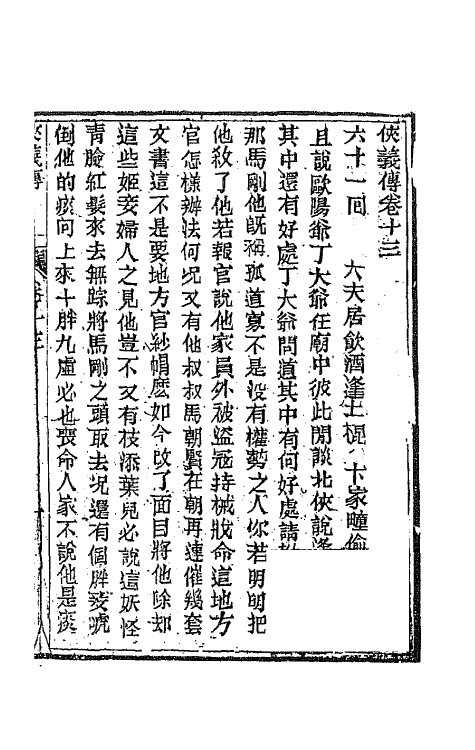 俠義傳卷十三
六十一回 大夫居飲酒逢土棍 卞家疃偷
且說歐陽爺丁大爺在廟中彼此閒談北俠說逢
其中還有好處丁大爺問道其中有何好處請
那馬剛他既稱孤道寡不是沒有權勢之人你若明明把
他殺了他若報官說他家員外被盜寇持械戕命這地方
官怎樣辦法何况又有他叔叔馬朝賢在朝再連催幾套
文書這不是要地方官紗帽麽如今改了面目將他除却
這些姬妾婦人之見他豈不又有枝添葉兒必說這妖怪
青臉紅髮來去無踪將馬剛之頭取去况還有個胖妾唬
倒他的痰向上來十胖九虛必也喪命人家不說他是痰
俠義傳